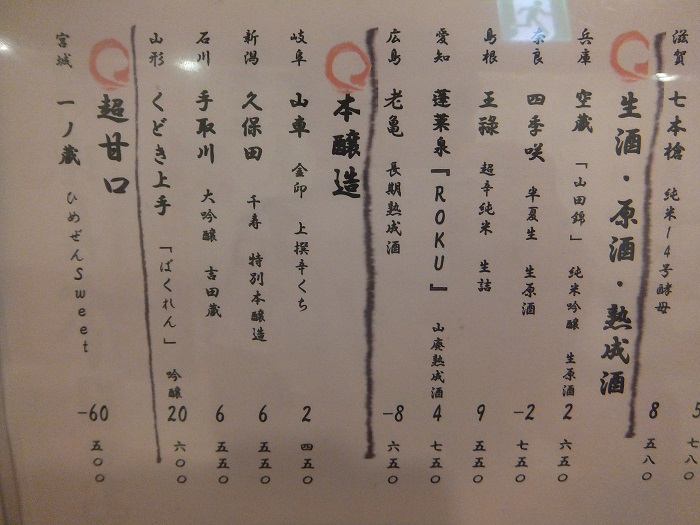 滋賀 七本槍 純米14号酵母 8 五八〇
生酒・原酒・熟成酒
兵庫 空蔵 「山田錦」 純米吟醸 生原酒 2 六五〇
奈良 四季咲 半夏生 生原酒 -2 七五〇
島根 王祿 超辛純米 生詰 9 五五〇
愛知 蓬莱泉『ROKU』 山廃熟成酒 4 七五〇
広島 老亀 長期熟成酒 -8 六五〇
本醸造
岐阜 山車 金印 上撰辛くち 2 四五〇
新潟 久保田 千寿 特別本醸造 6 五五〇
石川 手取川 大吟醸 吉田蔵 6 五五〇
山形 くどき上手 「ばくれん」 吟醸 20 六〇〇
超甘口
宮城 一ノ蔵 ひめぜんSweet -60 五〇〇